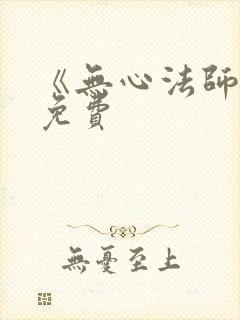 《無心法師
免費
無憂至上